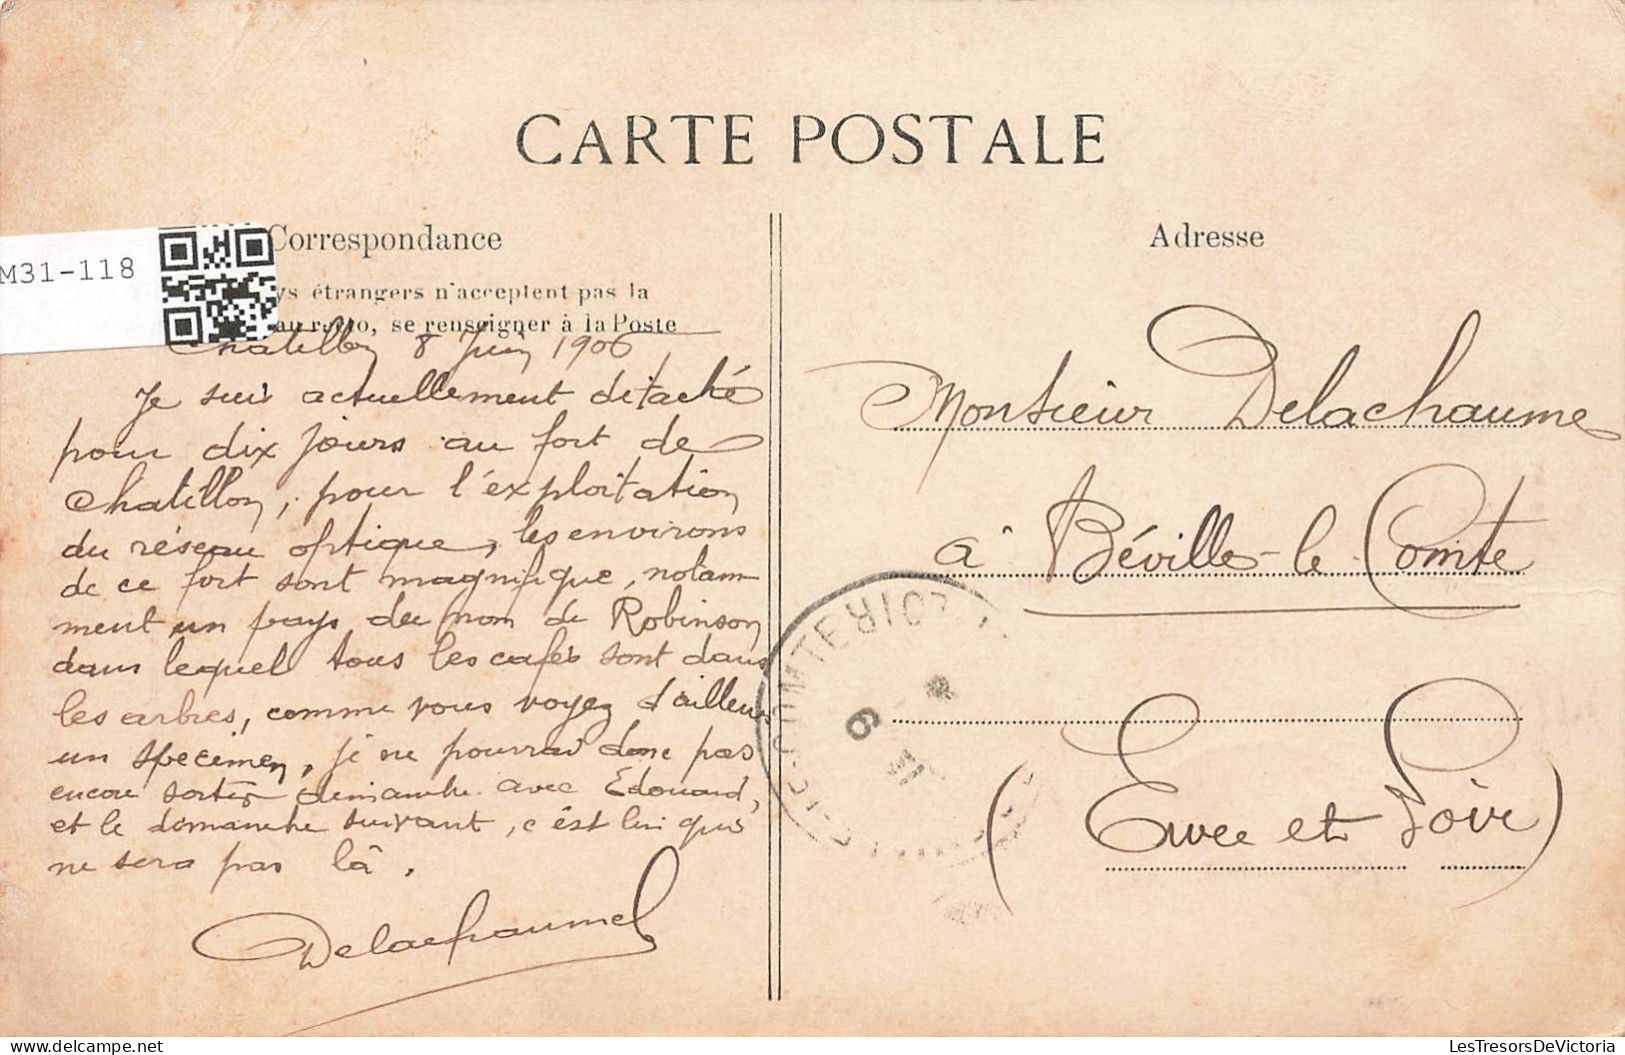 CARTE POSTALE
Correspondance
M31-118
ys étrangers n'acceptent pas la
au recto, se renseigner à la Poste
Châtillon 8 Juin 1906
Je suis actuellement détaché
pour dix jours au fort de
Chatillon, pour l'exploitation
du réseau optique, les environs
de ce fort sont magnifique, notam-
ment un pays du nom de Robinson
dans lequel tous les cafés sont dans
les arbres, comme vous voyez d'ailleurs
un specimen, je ne pourrai donc pas
encore sortir dimanche avec Edouard,
et le dimanche suivant, c'est lui qui
ne sera pas là.
Delachaume
Adresse
Monsieur Delachaume
à Béville-le-Comte
(Eure et Loir)
LE-COMTE
LOIR
9
LesTresorsDeVictoria
delcampe.net